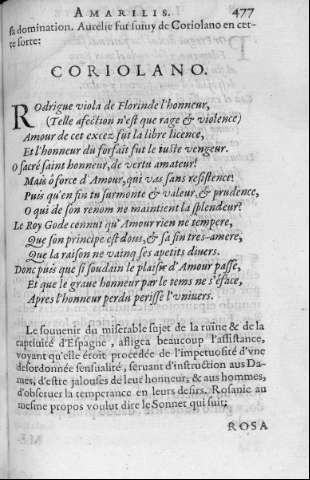 AMARILIS. 477
sa domination. Aurélie fut suiuy de Coriolano en cet-
te sorte:
CORIOLANO.
Rodrigue viola de Florinde l'honneur,
(Telle afection n'est que rage & violence)
Amour de cet excez fut la libre licence,
Et l'honneur du forfait fut le iuste vengeur.
O sacré saint honneur, de vertu amateur!
Mais ô force d'Amour, qui vas sans resistence!
Puis qu'en fin tu surmonte & valeur, & prudence,
O qui de son renom ne maintient la splendeur?
Le Roy Gode connut qu'Amour rien ne tempere,
Que son principe est dous, & sa fin tres-amere,
Que la raison ne vainq ses apetits diuers.
Donc puis que si soudain le plaisir d'Amour passe,
Et que le graue honneur par le tems ne s'éface,
Apres l'honneur perdu perisse l'vniuers.
Le souuenir du miserable sujet de la ruïne & de la
captiuité d'Espagne, afligea beaucoup l'assistance,
voyant qu'elle étoit procedée de l'impetuosité d'vne
desordonnée sensualité, seruant d'instruction aus Da-
mes, d'estre jalouses de leur honneur; & aus hommes,
d'obseruer la temperance en leurs desirs. Rosanie au
mesme propos voulut dire le Sonnet qui suit;
ROSA